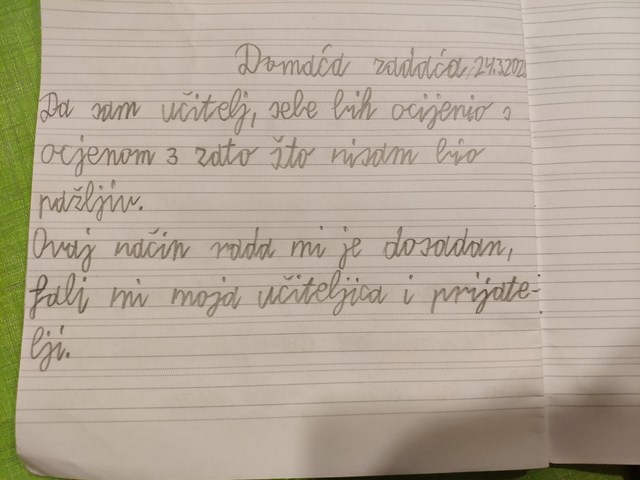 Domaća zadaća, 24.3.202
Da sam učitelj, sebe bih ocijenio s
ocjenom 3 zato što nisam bio
pažljiv.
Ovaj način rada mi je dosadan,
fali mi moja učiteljica i prijate-
lji.